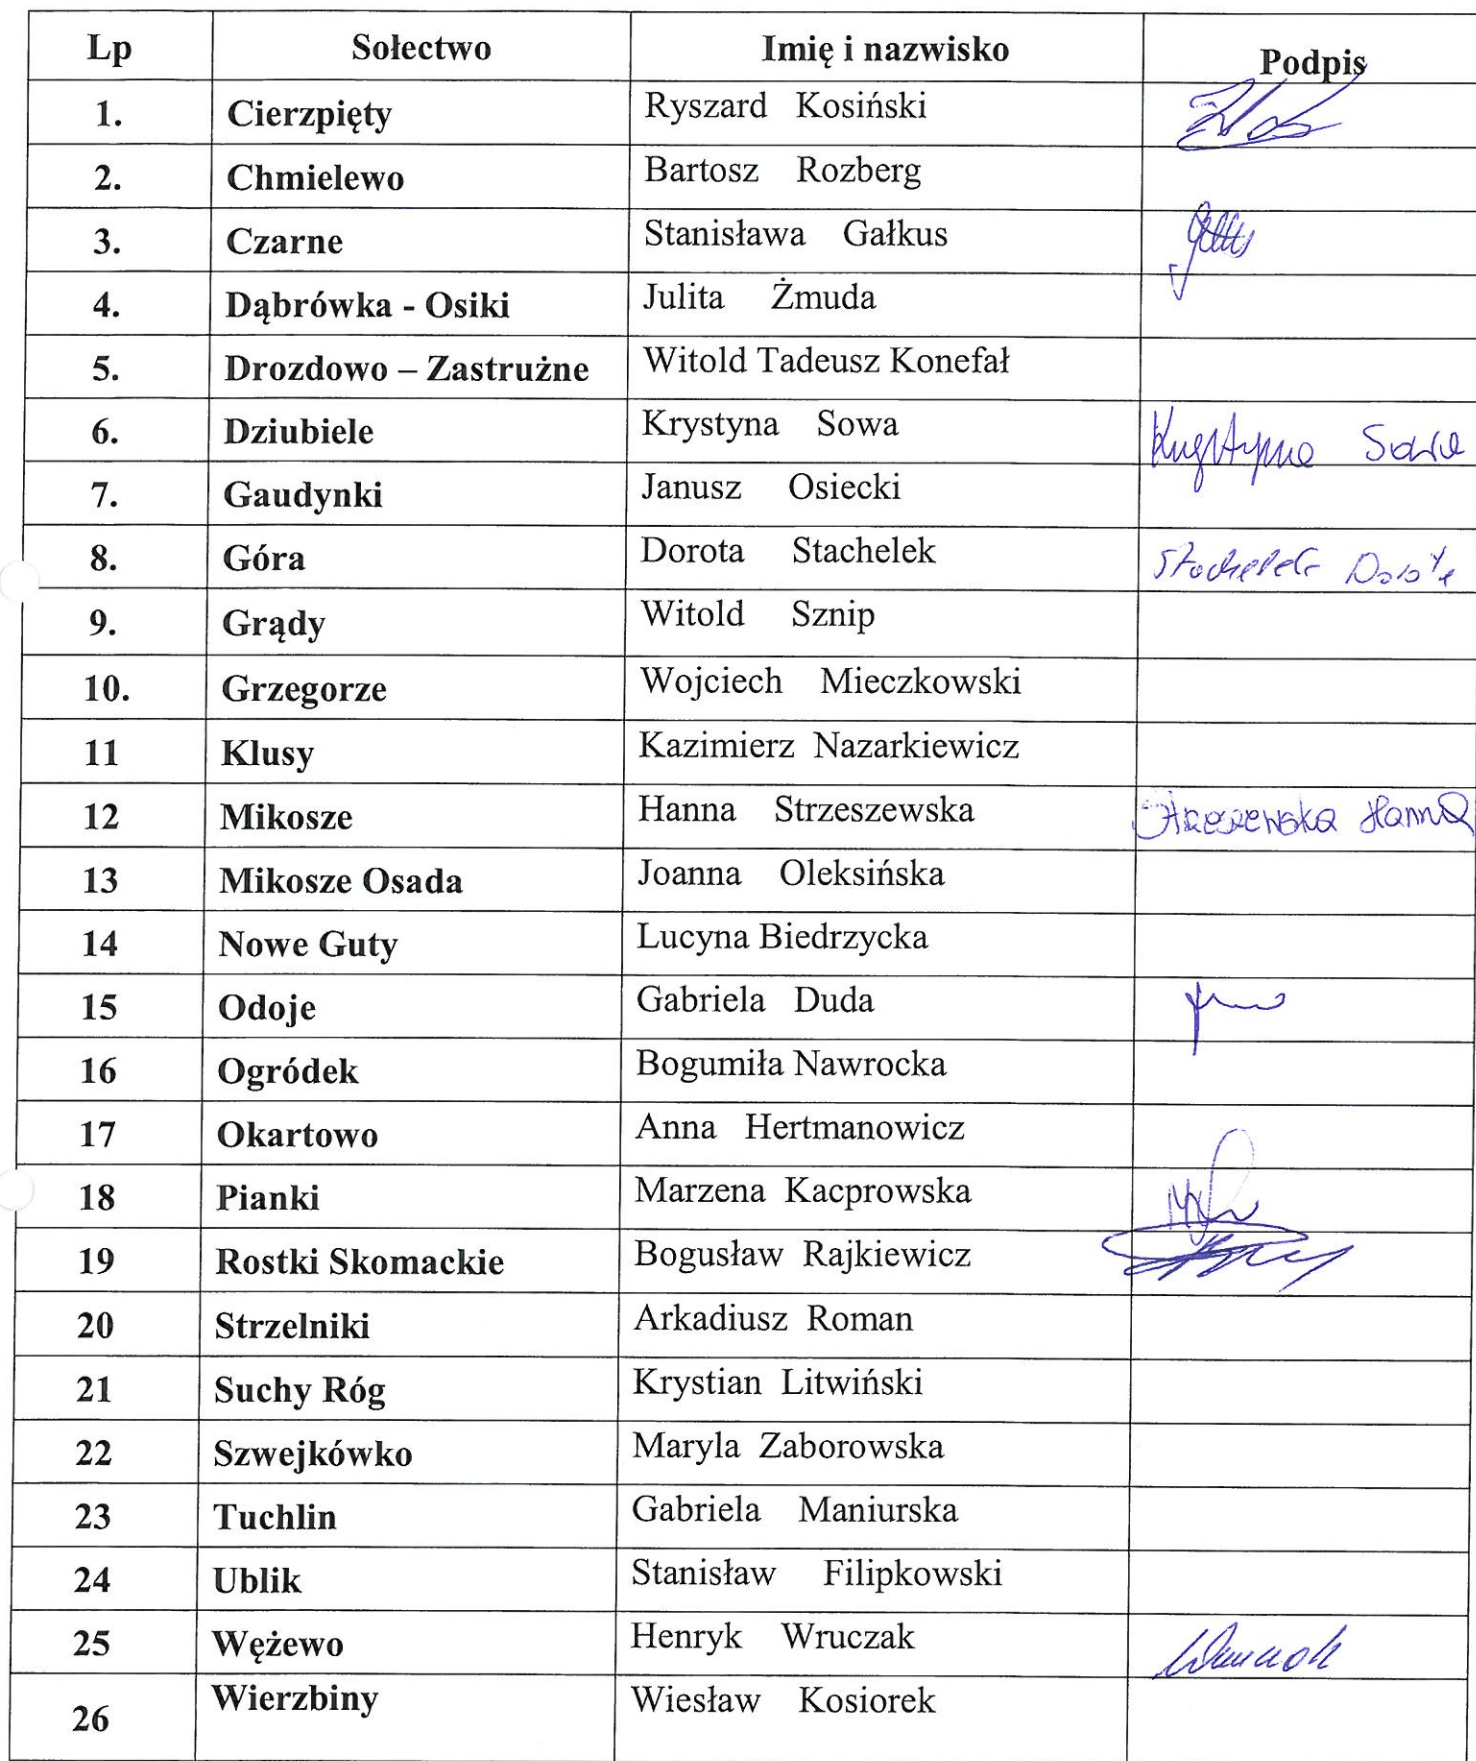 Lp Sołectwo Imię i nazwisko Podpis
1. Cierzpięty Ryszard Kosiński
2. Chmielewo Bartosz Rozberg
3. Czarne Stanisława Gałkus
4. Dąbrówka - Osiki Julita Żmuda
5. Drozdowo – Zastrużne Witold Tadeusz Konefał
6. Dziubiele Krystyna Sowa Krystyna Sowa
7. Gaudynki Janusz Osiecki
8. Góra Dorota Stachelek Stachelek Dorota
9. Grądy Witold Sznip
10. Grzegorze Wojciech Mieczkowski
11 Klusy Kazimierz Nazarkiewicz
12 Mikosze Hanna Strzeszewska Strzeszewska Hanna
13 Mikosze Osada Joanna Oleksińska
14 Nowe Guty Lucyna Biedrzycka
15 Odoje Gabriela Duda
16 Ogródek Bogumiła Nawrocka
17 Okartowo Anna Hertmanowicz
18 Pianki Marzena Kacprowska
19 Rostki Skomackie Bogusław Rajkiewicz
20 Strzelniki Arkadiusz Roman
21 Suchy Róg Krystian Litwiński
22 Szwejkówko Maryla Zaborowska
23 Tuchlin Gabriela Maniurska
24 Ublik Stanisław Filipkowski
25 Wężewo Henryk Wruczak
26 Wierzbiny Wiesław Kosiorek